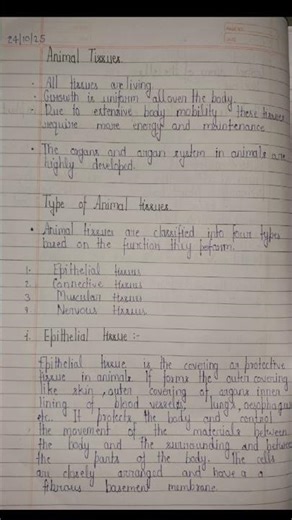 24/10/25
Animal Tissues
· All tissues are living
· Growth is uniform all over the body.
· Due to extensive body mobility these tissues
require more energy and maintenance
· The organs and organ system in animals are
highly developed.
Type of Animal tissues
· Animal tissues are classified into four types
based on the function they perform.
1. Epithelial tissues
2. Connective tissues
3 Muscular tissues
4 Nervous tissues
1. Epithelial tissue :-
Epithelial tissue is the covering or protective
tissue in animals. It forms the outer covering
like skin, outer covering of organs inner
lining of blood vessels, lungs, oesophagus
etc. It protects the body and control
the movement of the materials between
the body and the surrounding and between
the parts of the body. The cells
are closely arranged and have a a
fibrous basement membrane.